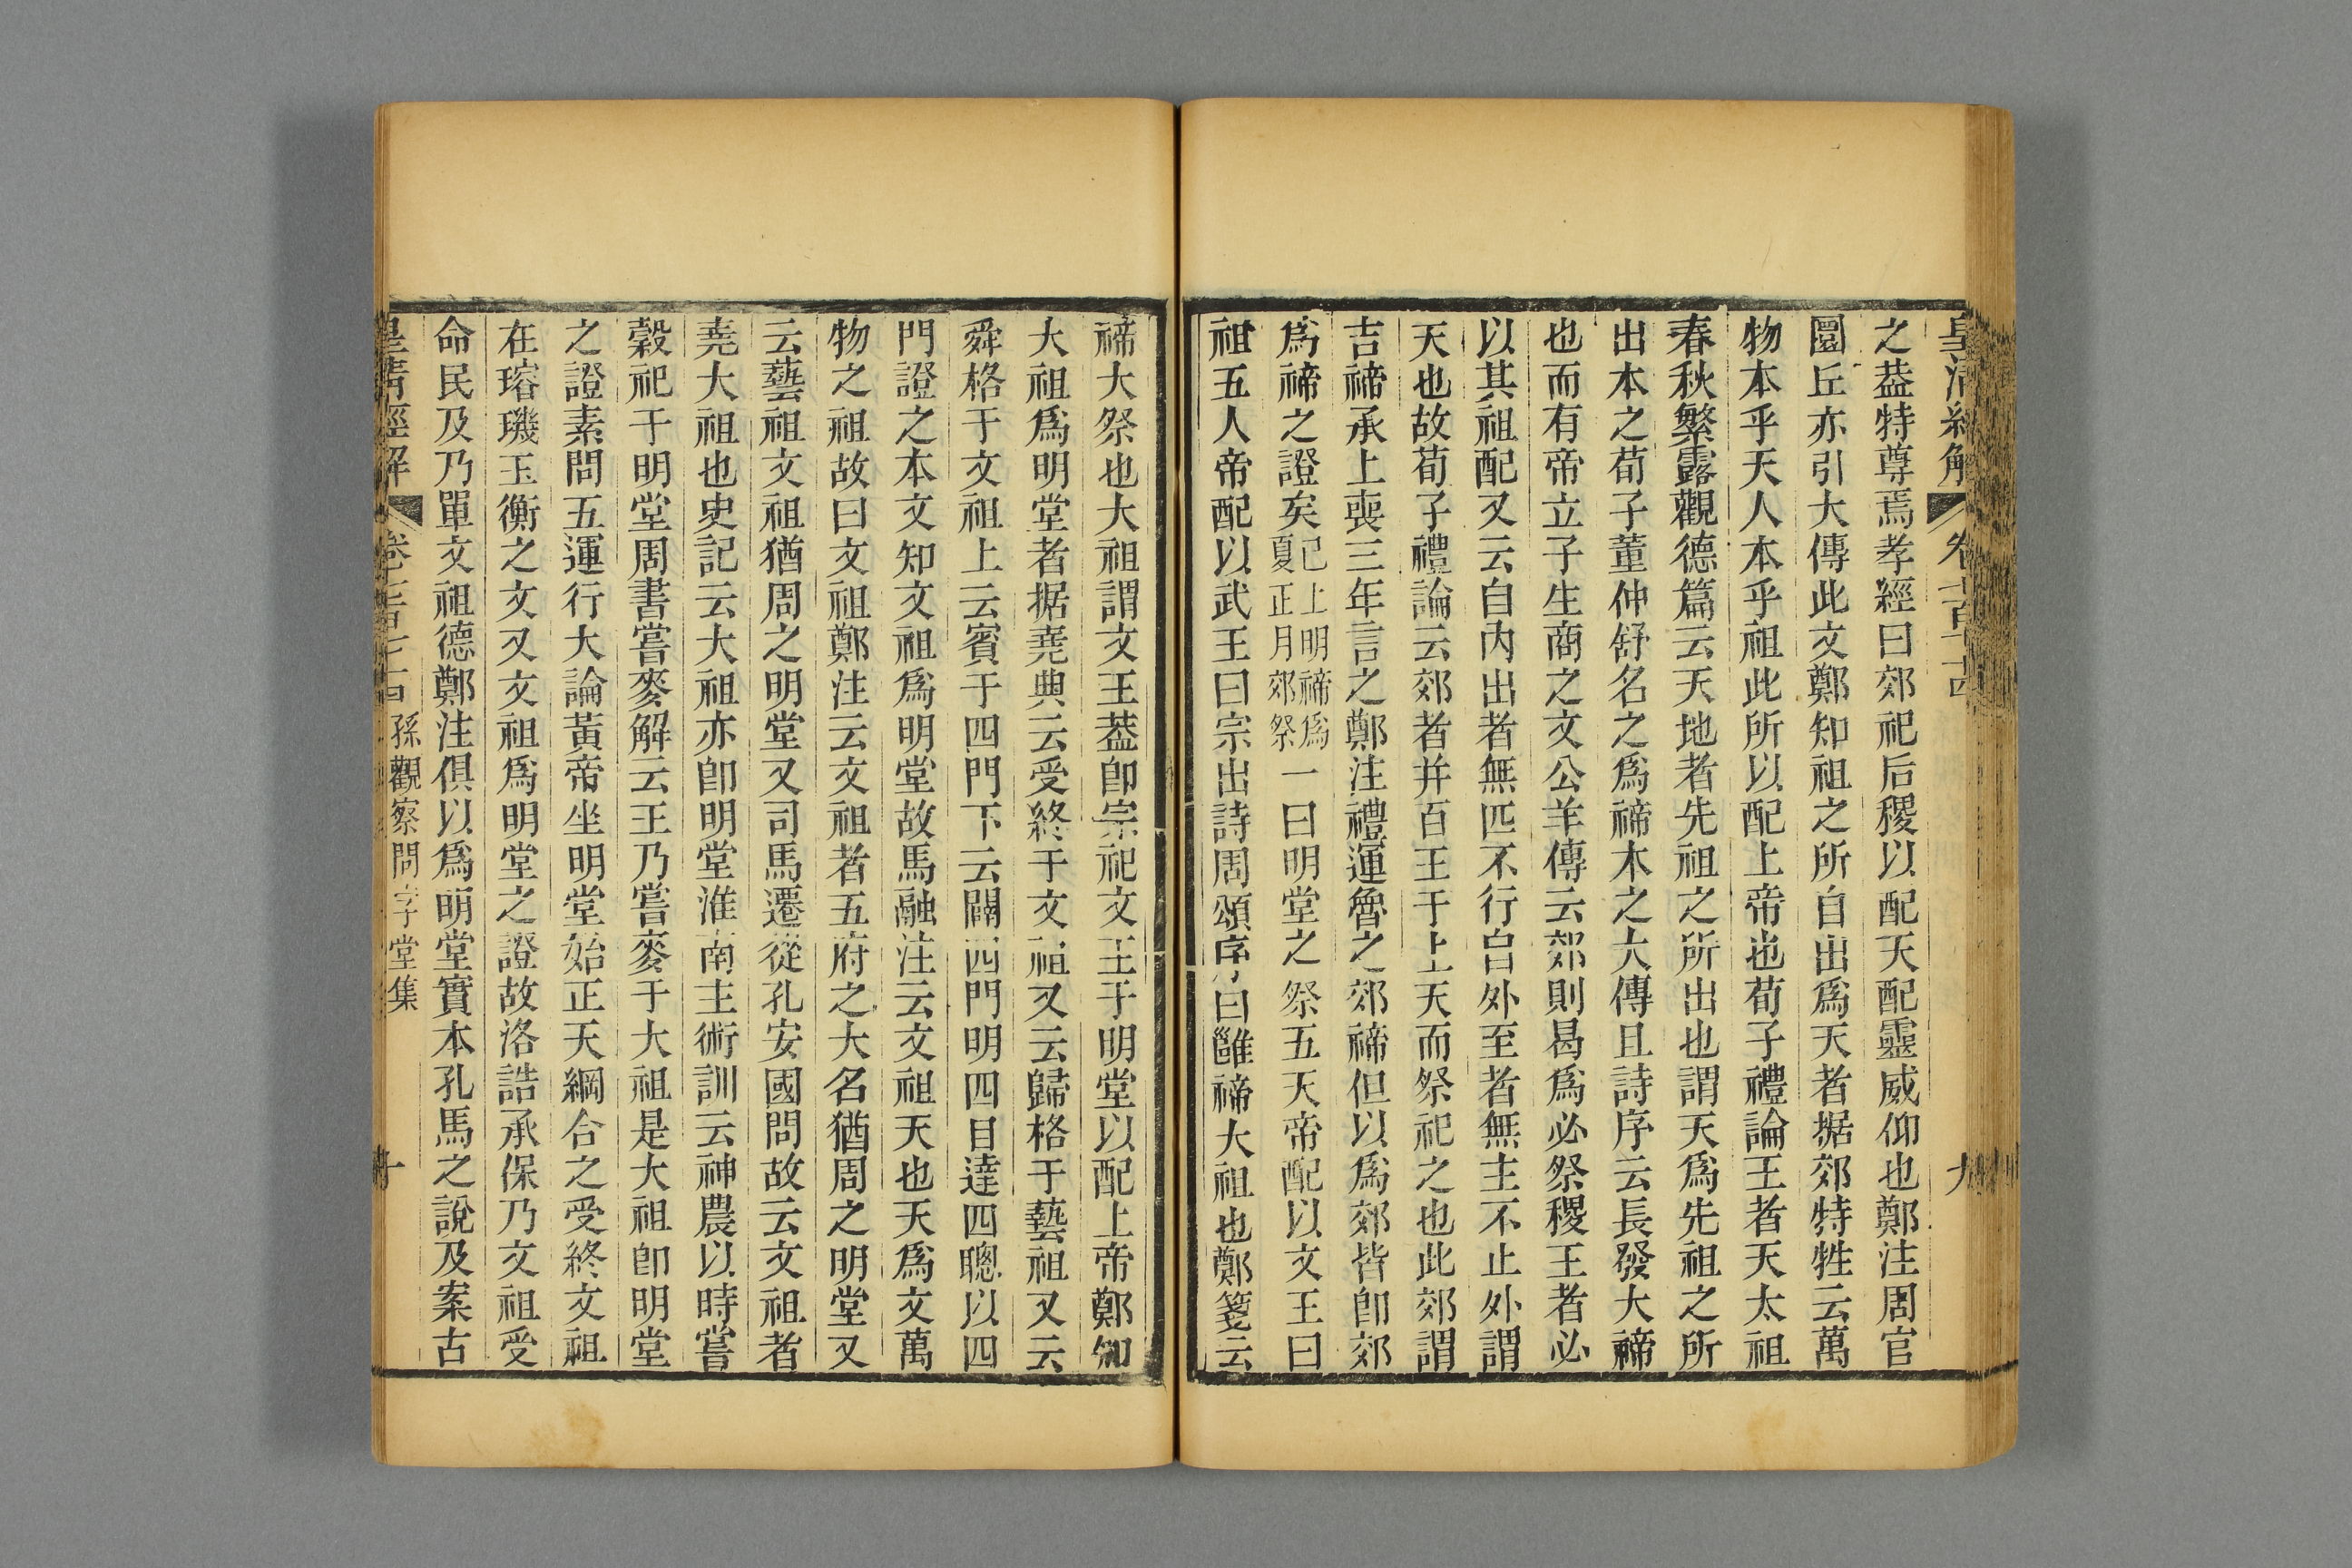 皇清經解 卷七百七十四 九
之葢特尊焉孝經曰郊祀后稷以配天配靈威仰也鄭注周官
圜丘亦引大傳此文鄭知祖之所自出爲天者据郊特牲云萬
物本乎天人本乎祖此所以配上帝也荀子禮論王者天太祖
春秋繁露觀德篇云天地者先祖之所出也謂天爲先祖之所
出本之荀子董仲舒名之爲禘本之大傳且詩序云長發大禘
也而有帝立子生商之文公羊傳云郊則曷爲必祭稷王者必
以其祖配又云自內出者無匹不行自外至者無主不止外謂
天也故荀子禮論云郊者并百王于上天而祭祀之也此郊謂
吉禘承上喪三年言之鄭注禮運魯之郊禘但以爲郊皆卽郊
爲禘之證矣已上明禘爲夏正月郊祭一曰明堂之祭五天帝配以文王曰
祖五人帝配以武王曰宗出詩周頌序曰雝禘大祖也鄭箋云
禘大祭也大祖謂文王葢卽宗祀文王于明堂以配上帝鄭知
大祖爲明堂者据堯典云受終于文祖又云歸格于藝祖又云
舜格于文祖上云賓于四門下云闢四門明四目達四聰以四
門證之本文知文祖爲明堂故馬融注云文祖天也天爲文萬
物之祖故曰文祖鄭注云文祖者五府之大名猶周之明堂又
云藝祖文祖猶周之明堂又司馬遷從孔安國問故云文祖者
堯大祖也史記云大祖亦卽明堂淮南主術訓云神農以時嘗
穀祀于明堂周書嘗麥解云王乃嘗麥于大祖是大祖卽明堂
之證素問五運行大論黃帝坐明堂始正天綱合之受終文祖
在璿璣玉衡之文又文祖爲明堂之證故洛誥承保乃文祖受
命民及乃單文祖德鄭注俱以爲明堂實本孔馬之說及案古
皇清經解 卷七百七十四 孫觀察問字堂集 十